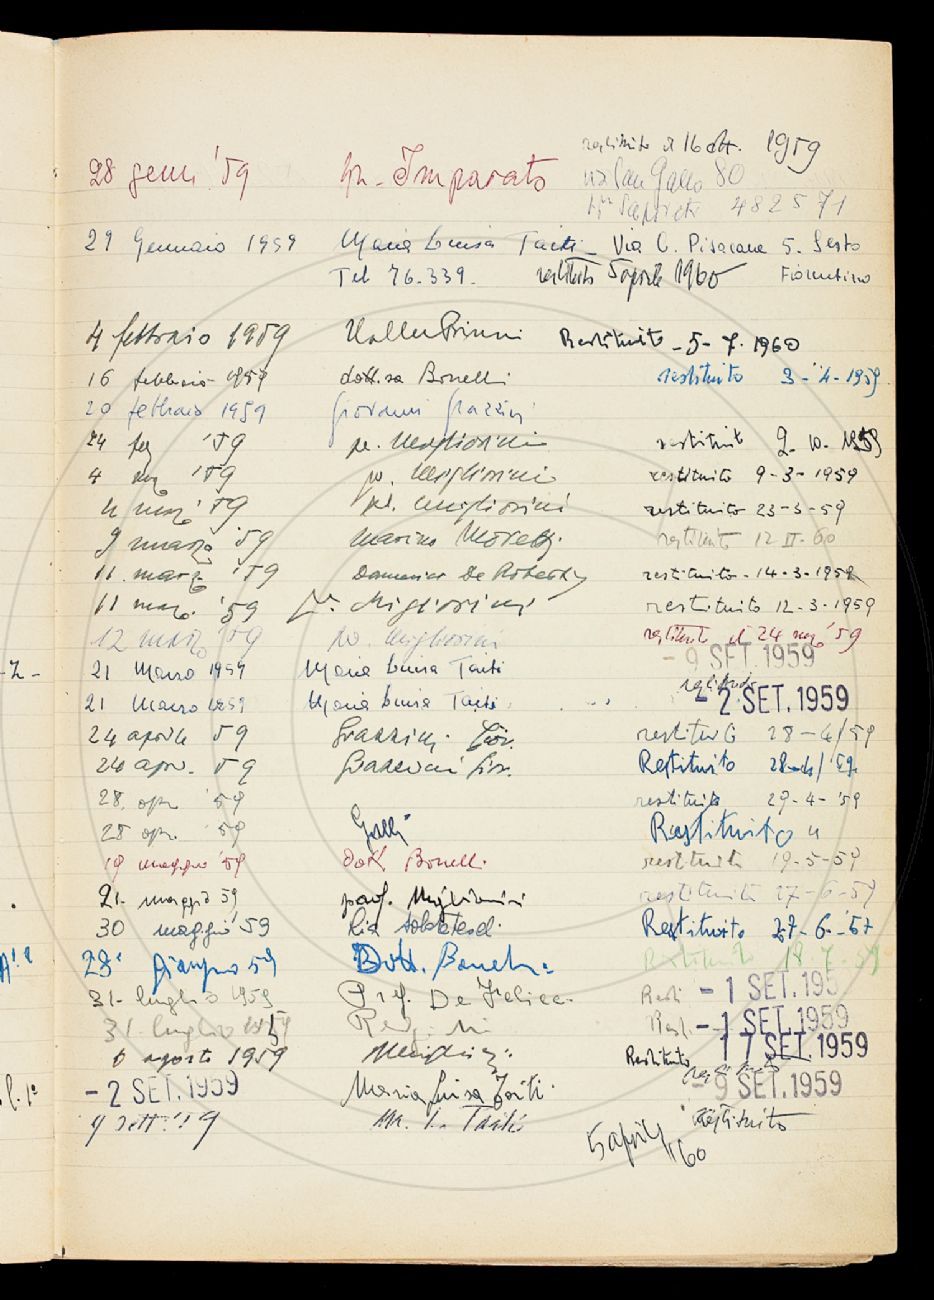 restituito il 16 ott. 1959
28 genn. '59 Imparato via San Gallo 80
482571
29 Gennaio 1959 Maria Luisa Taiti - Via C. Pisacane 5. Sesto
Tel 76.339. restituito 5 aprile 1960 Fiorentino
4 febbraio 1959 Restituito - 5- 7. 1960
16 febbraio 1959 dott.ssa Bonelli restituito 3-4-1959
20 febbraio 1959 Giovanni Grazzini
24 '59 Migliorini restituito 9. 1959
4 '59 Migliorini restituito 9-3-1959
4 mar. '59 Migliorini restituito 23-3-59
9 marzo '59 Marino Moretti restituito 12 II-60
11. marzo '59 Domenico De Robertis restituito - 14-3-1959
11 mar. '59 Migliorini restituito 12-3-1959
12 marzo '59 Migliorini restituito il 24 '59
- 9 SET. 1959
-2- 21 Marzo 1959 Maria Luisa Taiti
restituito
21 Marzo 1959 Maria Luisa Taiti - 2 SET. 1959
24 aprile 59 Grazzini restituito 28-4/59
24 apr. 59 Restituito 28-4/59
28. apr. '59 restituito 29-4-'59
28 apr. '59 Galli Restituito "
19 maggio '59 dott Bonelli restituito 19-5-59
21- maggio 59 prof. Migliorini restituito 27-6-59
30 maggio '59 Restituito 27-6-'57
23 giugno 59 Dott. Bonelli Restituito 18-7-59
31- luglio 1959 Prof. De Felice. Resti - 1 SET. 195
31 luglio 1959 Rest. - 1 SET. 1959
6 agosto 1959 Restituito 17 SET. 1959
- 2 SET. 1959 Maria Luisa Taiti - 9 SET. 1959
9 sett. '59 M. L. Taiti restituito
5 aprile '60